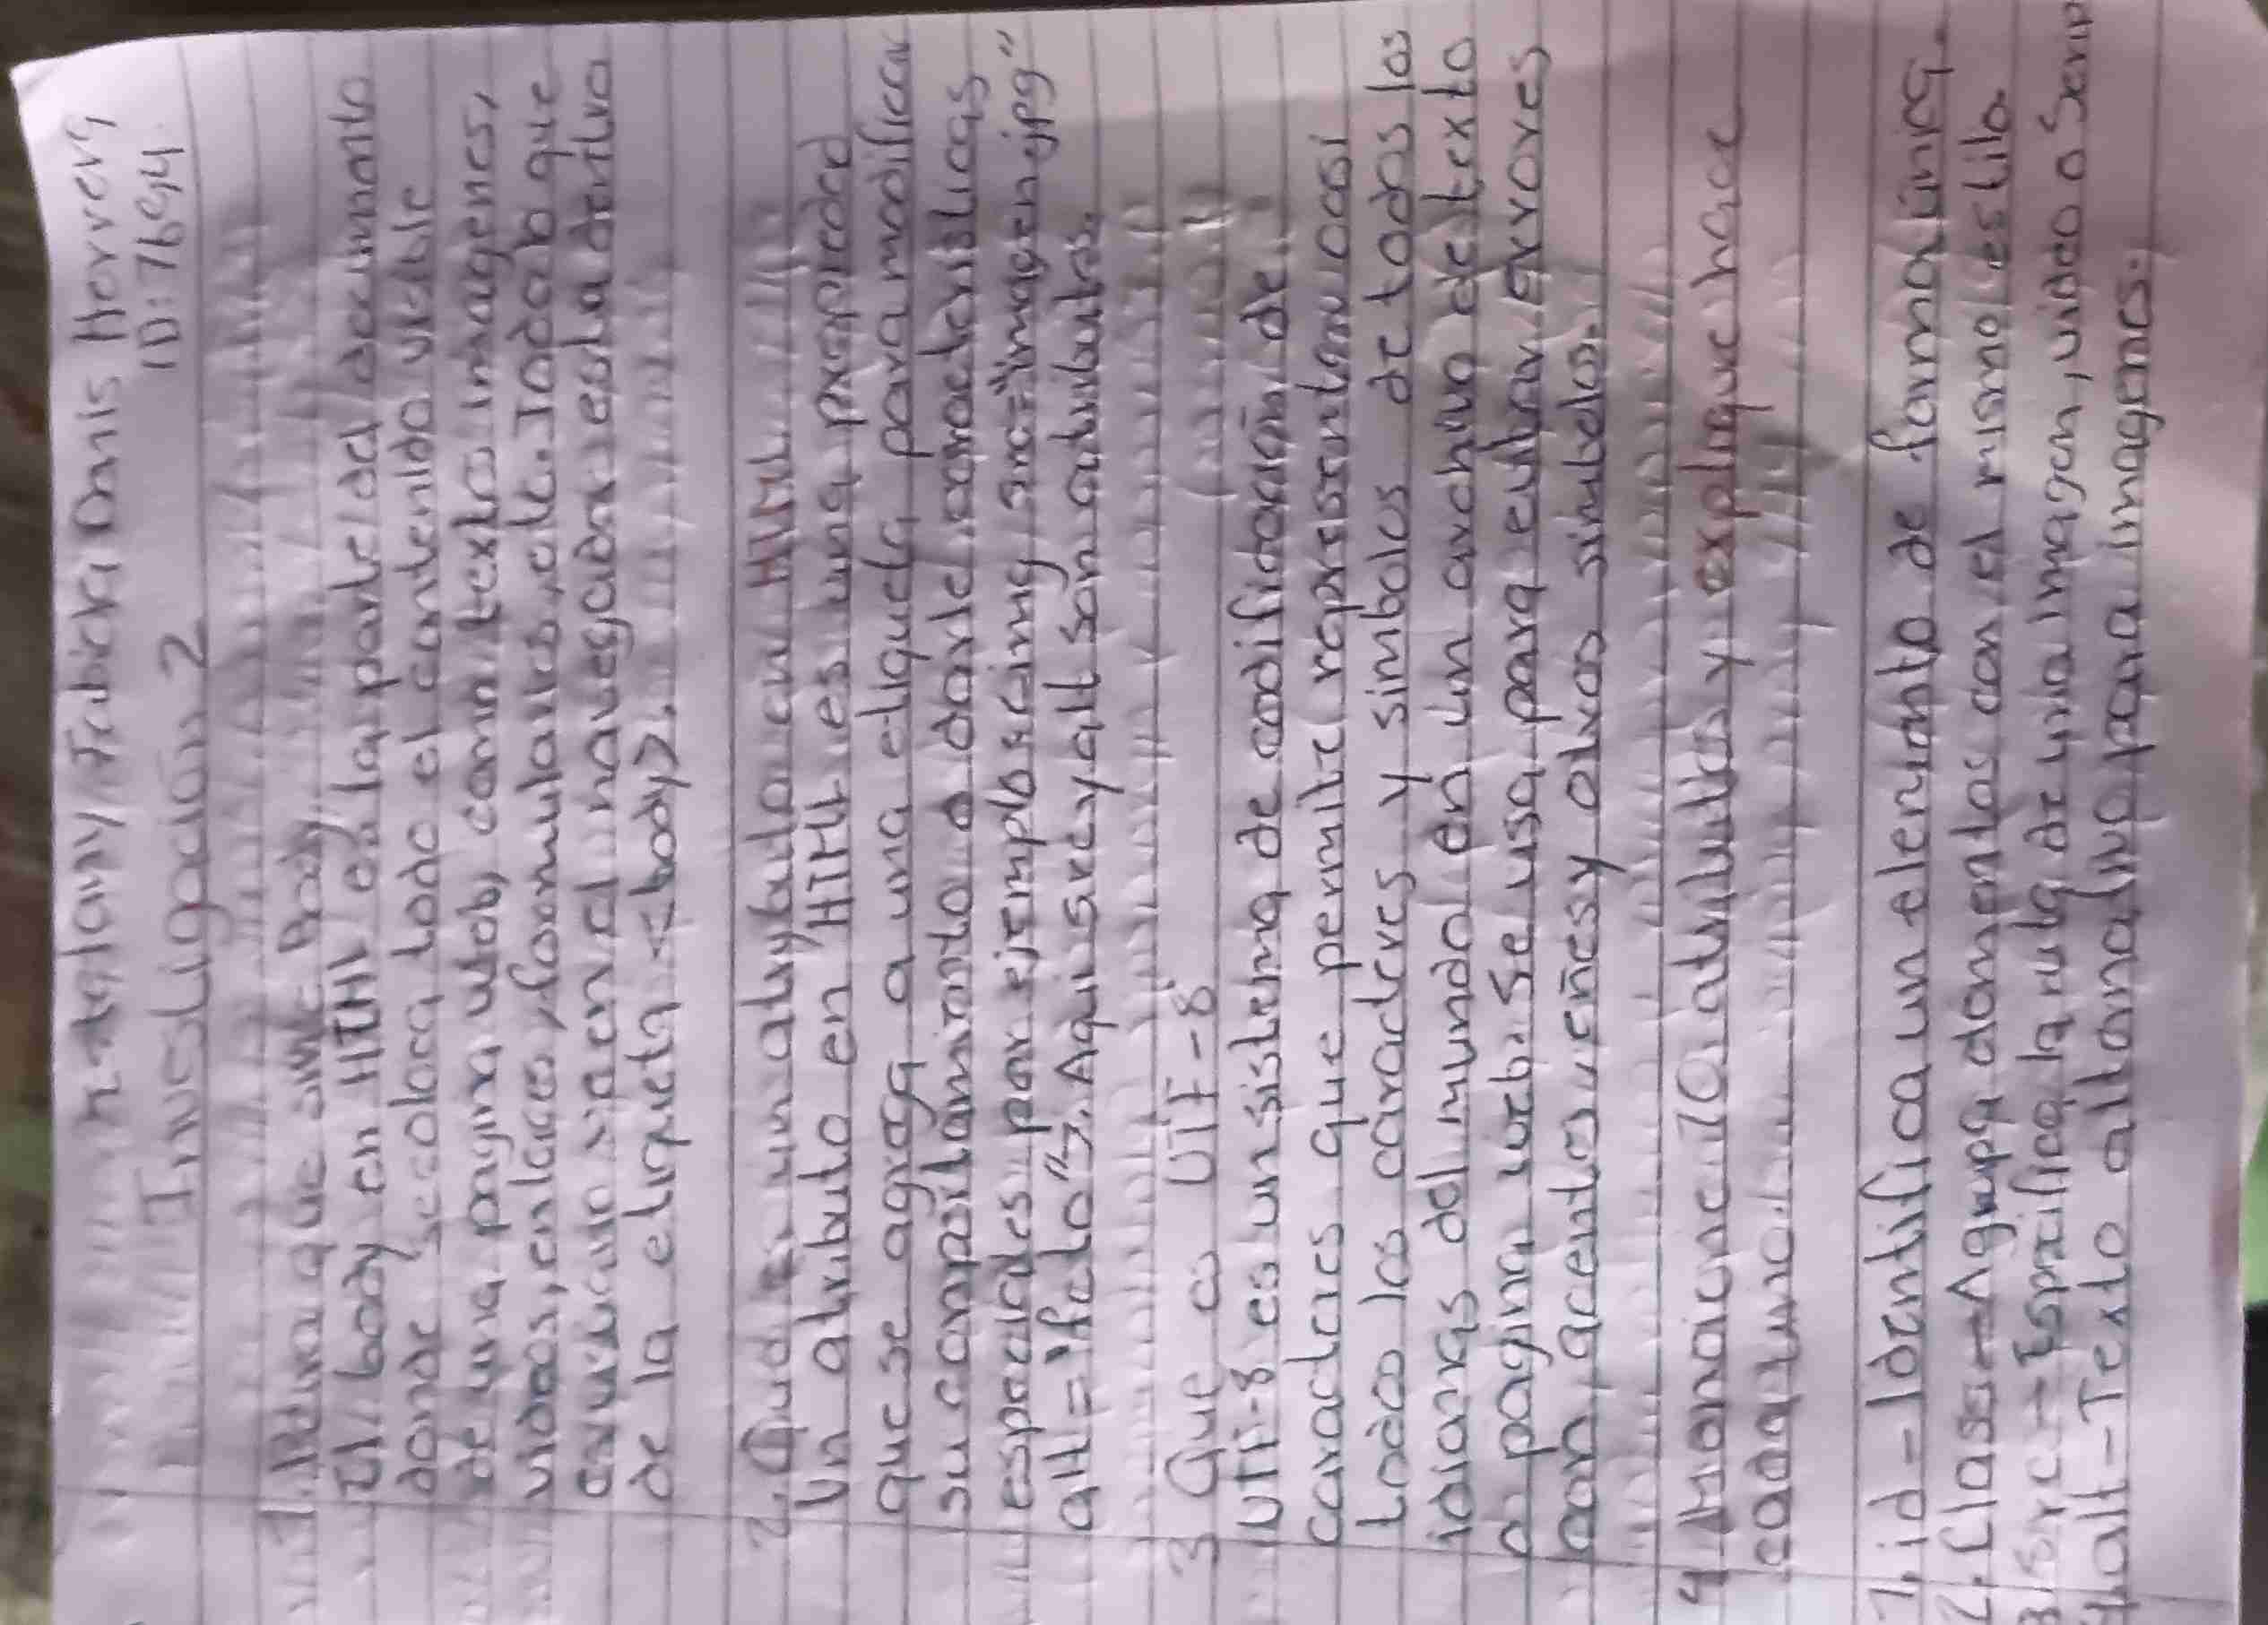 Danis Herrera
ID: 7694
Investigación 2
1. que sirve Body.
El body en HTML es la parte del documento
donde se coloca todo el contenido visible
de una pagina web, como texto, imagenes,
videos, enlaces, formularios, etc. Todo lo que
en el navegador esta dentro
de la etiqueta <body>.
2. Qué es un atributo en HTML
Un atributo en HTML es una propiedad
que se agrega a una etiqueta para modificar
su comportamiento o darle caracteristicas
especiales por ejemplo <img src="imagen.jpg"
alt="foto">. Aqui src y alt son atributos.
3 Que es UTF-8
UTF-8 es un sistema de codificación de
caracteres que permite representar casi
todos los caracteres y simbolos de todos los
idiomas del mundo en un archivo de texto
o pagina web. Se usa para evitar errores
con acentos, eñes y otros simbolos.
4 Mencione 10 atributos y explique hace
cada uno.
1. id - Identifica un elemento de forma única.
2. Class - Agrupa elementos con el mismo estilo.
3. src - Especifica la ruta de una imagen, video o Scrip
4. alt - Texto alternativo para imagenes.